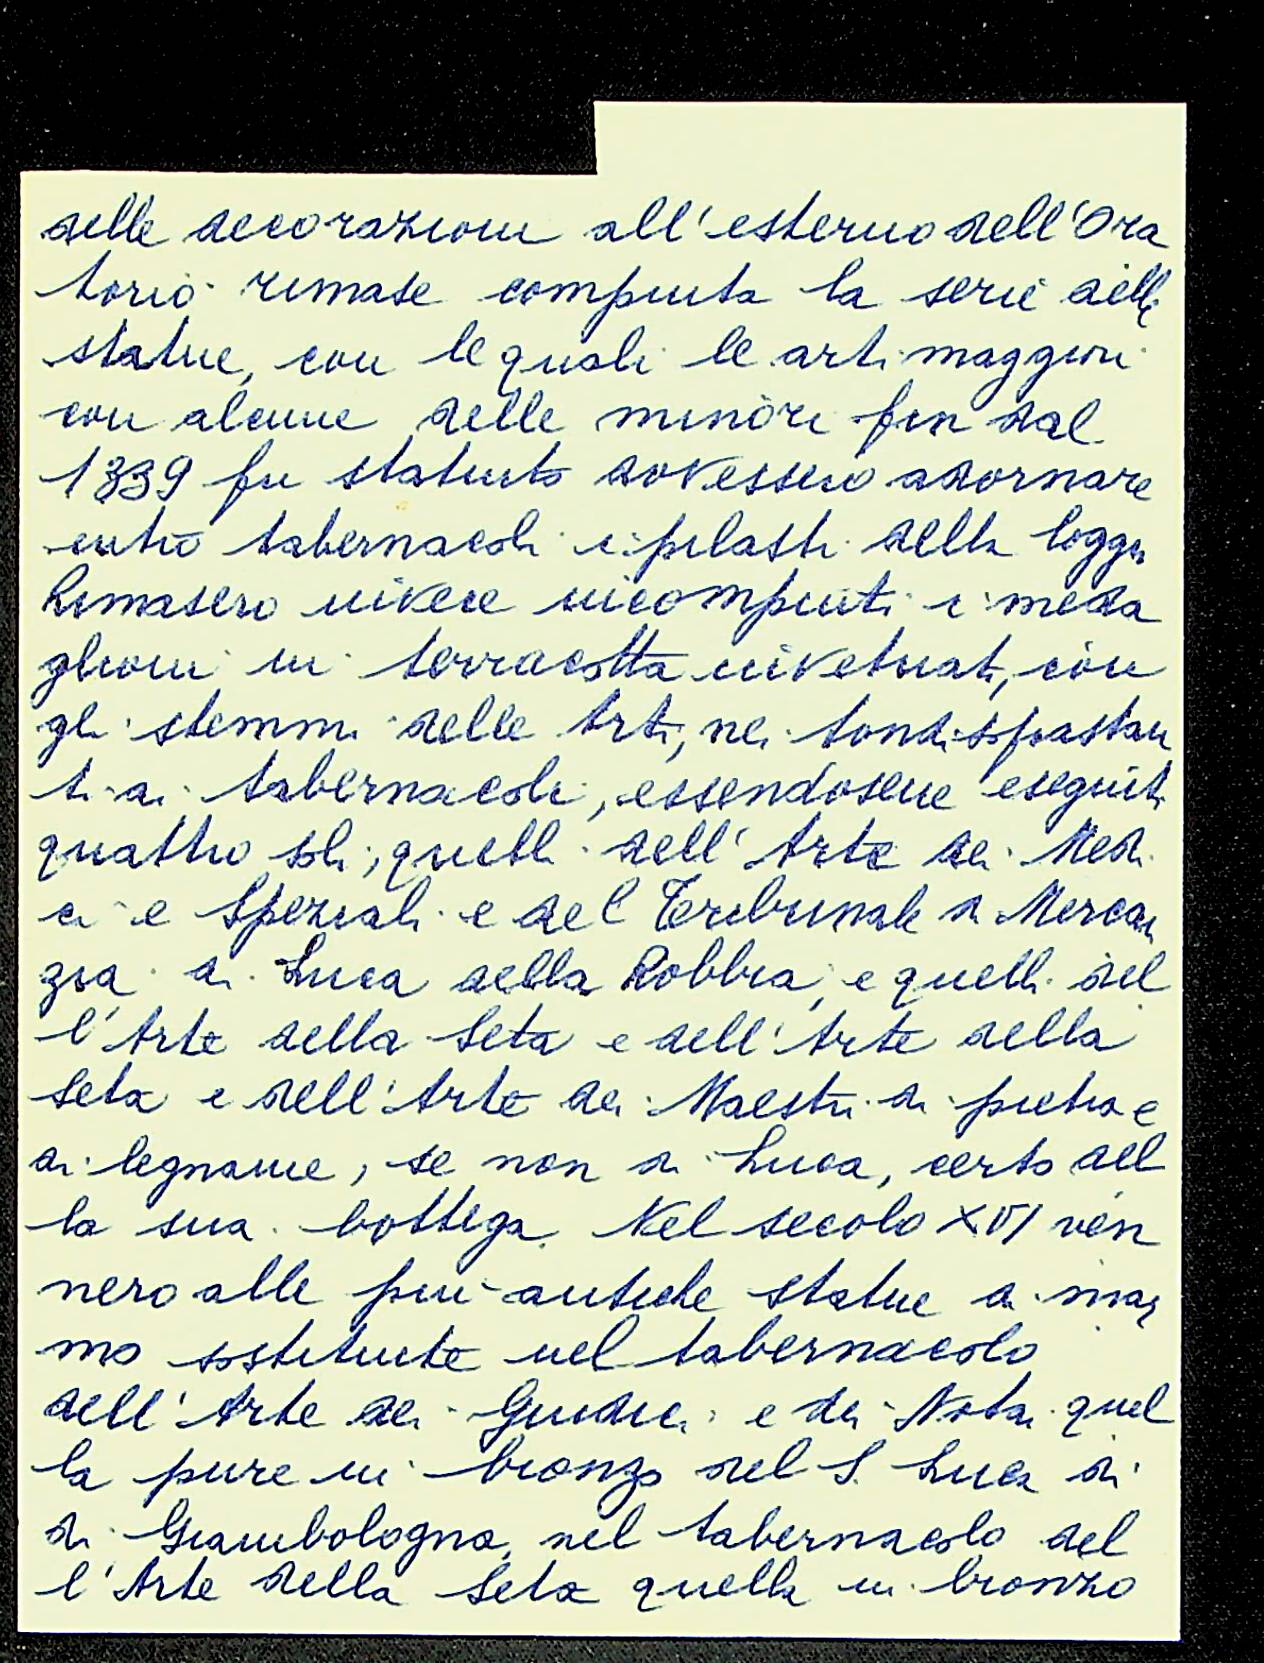 delle decorazioni all'esterno dell'Ora
torio rimase compiuta la serie delle
statue, con le quali le arti maggiori
con alcune delle minori fin dal
1339 fu statuito dovessero adornare
entro tabernacoli i pilastri della loggia
Rimasero invece incompiuti i meda
glioni in terracotta invetriati, con
gli stemmi delle Arti, nei tondi soprastan
ti ai tabernacoli, essendosene eseguiti
quattro soli; quelli dell'Arte dei Medi
ci e Speziali e del Tribunale di Mercan
zia di Luca della Robbia, e quelli del
l'Arte della Seta e dell'Arte della
Seta e dell'Arte dei Maestri di pietra e
di legname, se non di Luca, certo del
la sua bottega. Nel secolo XVI ven
nero alle più antiche statue di mar
mo sostituite nel tabernacolo
dell'Arte dei Giudici e dei Notai quel
la pure in bronzo del S. Luca di
di Giambologna, nel tabernacolo del
l'Arte della Seta quella in bronzo